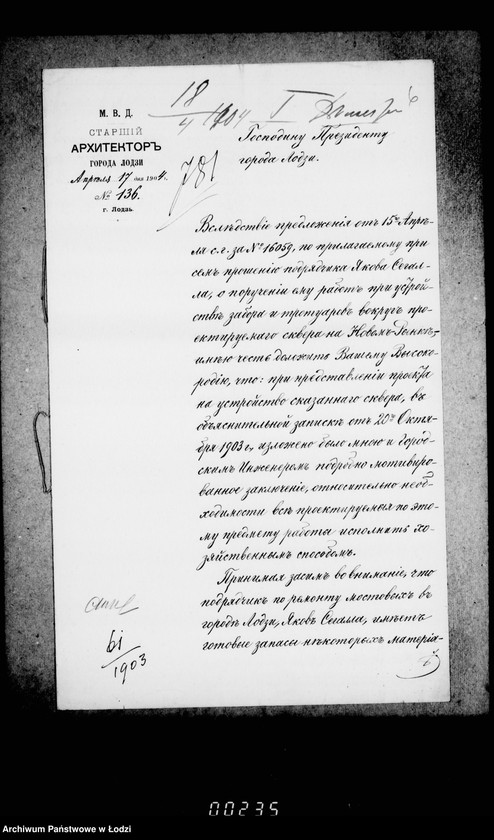 М. В. Д.
СТАРШІЙ
АРХИТЕКТОРЪ
ГОРОДА ЛОДЗИ
Апрѣля 17 дня 1904 г.
№ 136.
г. Лодзь.
18/4 1904 I
781
Господину Президенту
города Лодзи.
Вслѣдствіе предложенія отъ 15го Апрѣ-
ля с.г. за № 16059, по прилагаемому при
семъ прошенію подрядчика Якова Сегал-
ла, о порученіи ему работъ при устрой-
ствѣ забора и тротуаровъ вокругъ про-
ектируемаго сквера на Новомъ-Рынкѣ,-
имѣю честь доложить Вашему Высоко-
родію, что: при представленіи проекта
на устройство сказаннаго сквера, въ
объяснительной запискѣ отъ 20го Октя-
бря 1903 г., изложено было мною и Город-
скимъ Инженеромъ подробно мотивиро-
ванное заключеніе, относительно необ-
ходимости всѣ проектируемыя по это-
му предмету работы исполнить хо-
зяйственнымъ способомъ.
Принимая засимъ во вниманіе, что
подрядчикъ по ремонту мостовыхъ въ
городѣ Лодзи, Яковъ Сегалла, имѣетъ
готовые запасы нѣкоторыхъ матерія-
61/1903
00235
Archiwum Państwowe w Łodzi